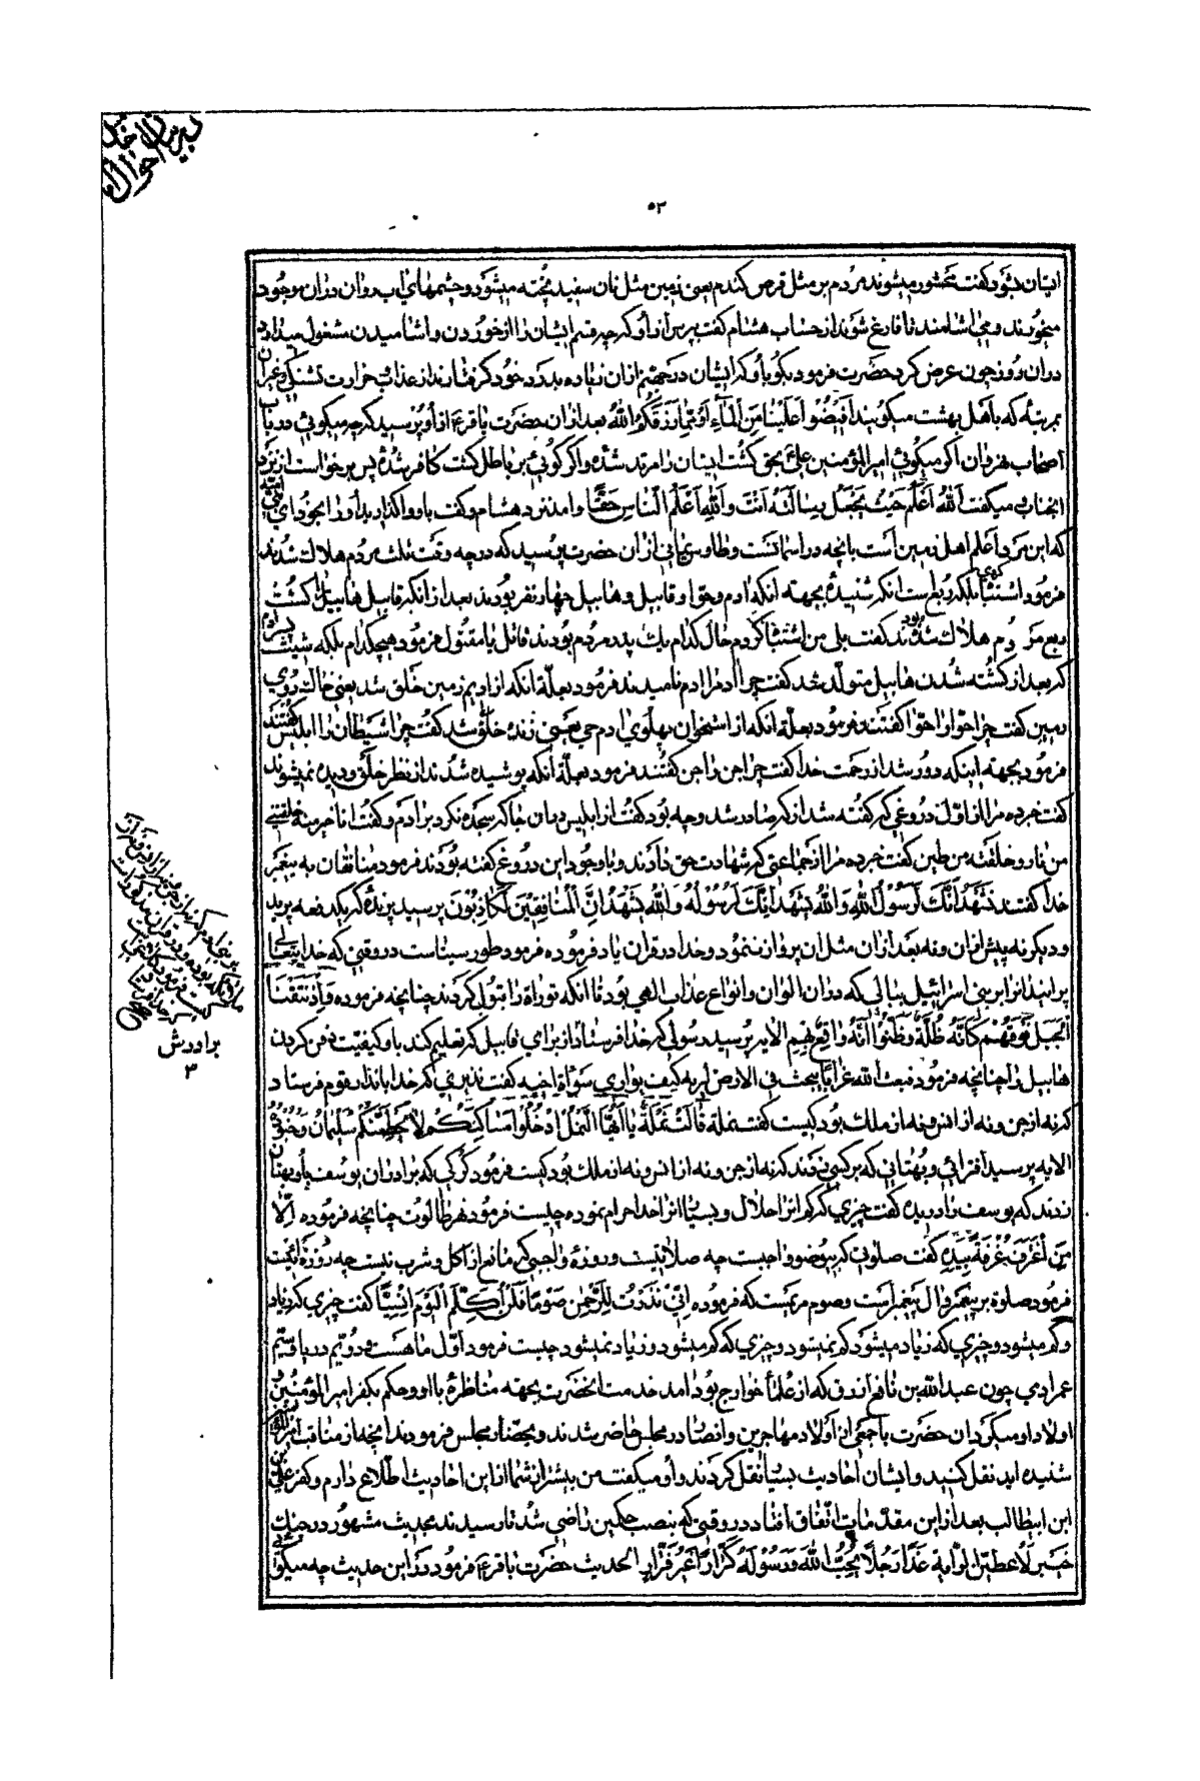 ۵۲
ایشان بشود گفت محشور میشوند مردم بر مثل قرص گندم یعنی زمین مثل نان سفید پخته میشود و چشمهای آب روان دران موجود
میخورند و می اشامند تا فارغ شوند از حساب هشام گفت بپرس از او که چه قسم ایشان را از خوردن و اشامیدن مشغول میدارد
دران روز چون عرض کرد حضرت فرمود بگو باو که ایشان در جهنم ازان زیاده بدرد خود گرفتارند از عذاب حرارت تشنگی و غیران
بمرتبه که باهل بهشت میگویند اَفیضُوا عَلَینا مِنَ اَلمآءِ اَو مِمّا رَزَقَکُمُ اللهُ بعد ازان حضرت باقرع از او پرسید که چه میگوئی در باب
اصحاب نهروان اگر میگوئی امیر المؤمنین علیع بحق کشت ایشان را مرتد شده و اگر گوئی بر باطل کشت کافر شدهٔ پس برخواست از نزد
انجناب میگفت اَللهُ اَعلَمُ حَیثُ یَجعَلُ رِسالَتَهُ اَنتَ وَاللهِ اَعلَمُ النّاسِ حَقًّا و امد نزد هشام و گفت باو واگذارید او را بخود ای
که این مرد اعلم اهل زمین است بانچه در اسمانست و طاوس یمانی ازان حضرت پرسید که در چه وقت ثلث مردم هلاک شدند
فرمود اشتباه کردی بلکه ربع است انکه شنیدهٔ بجهته انکه ادم و حوا و قابیل و هابیل چهار نفر بودند بعد از انکه قابیل هابیل را کشت
ربع مردم هلاک شده بودند گفت بلی من اشتباه کردم حال کدام یک پدر مردم بودند قاتل یا مقتول فرمود هیچکدام بلکه شیث پسر ادم
که بعد از کشته شدن هابیل متولد شد گفت چرا ادم را ادم نامیدند فرمود بعلّة انکه از ادیم زمین خلق شد یعنی خاک روی
زمین گفت چرا حوا را حوا گفتند فرمود بعلّة انکه از استخوان پهلوی ادم حی یعنی زنده خلق شد گفت چرا شیطان را ابلیس گفتند
فرمود بجهته اینکه دور شد از رحمت خدا گفت چرا جن را جن گفتند فرمود بعلّة انکه پوشیده شدند از نظر خلق و دیده نمیشوند
گفت خبرده مرا از اوّل دروغی که گفته شد از که صادر شد و چه بود گفت از ابلیس در ان جا که سجده نکرد بر ادم و گفت انا خیر منه خلقتنی
من نار و خلقته من طین گفت خبرده مرا از جماعتی که شهادت حق دادند و با وجود این دروغ گفته بودند فرمود منافقان به پیغمبر
خدا گفتند نَشهَدُ اِنَّکَ لَرَسُولُ اللهِ وَاللهُ یَشهَدُ اِنَّکَ لَرَسُولُهُ وَاللهُ یَشهَدُ اِنَّ المُنافِقینَ لَکاذِبُونَ پرسید پرندهٔ که یکدفعه پرید
و دیگر نه پیش ازان و نه بعد ازان مثل ان پرواز ننمود و خدا در قران یاد فرموده فرمود طور سیناست در وقتی که خدا یتعالی
پرانید انرا بر بنی اسرائیل ببالی که دران الوان و انواع عذاب الهی بود تا انکه توراة را قبول کردند چنانچه فرموده وَ اِذ نَتَقنَا
الجَبَلَ فَوقَهُم کَاَنَّهُ ظُلَّةٌ وَظَنُّوا اَنَّهُ واقِعٌ بِهِم الایه پرسید رسولی که خدا فرستاد از برای قابیل که تعلیم کند باو کیفیّت دفن کردن
هابیل را چنانچه فرمود فبعث الله غرابا یبحث فی الارض لیریه کیف یواری سوأة اخیه گفت نذیری که خدا بانذار قوم فرستاد
که نه از جن و نه از انس و نه از ملک بود کیست گفت نملة قالَت نَملَةٌ یا اَیُّهَا النَّملُ ادخُلُوا مَساکِنَکُم لا یَحطِمَنَّکُم سُلَیمانُ وَجُنُودُهُ
الایه پرسید افترائی و بهتانی که بر کسی زدند که نه از جن و نه از انس و نه از ملک بود کیست فرمود گرگی که برادران یوسف باو بهتان
زدند که یوسف را دریده گفت چیزی که کم انرا حلال و بسیار انرا خدا حرام نموده چیست فرمود نهر طالوت چنانچه فرموده اِلّا
مَن اغتَرَفَ غُرفَةً بِیَدِهِ گفت صلوتی که بیوضو واجبست چه صلاتیست و روزهٔ واجبی که مانع از اکل و شرب نیست چه روزهٔ ایست
فرمود صلوة بر پیغمبر و ال پیغمبر است و صوم مریمست که فرموده اِنّی نَذَرتُ لِلرَّحمنِ صَومًا فَلَن اُکَلِّمَ الیَومَ اِنسِیًّا گفت چیزی که زیاد
و کم میشود و چیزی که زیاد میشود و کم نمیشود و چیزی که کم میشود و زیاد نمیشود چیست فرمود اوّل ماهست و دویّم دریا و سیّم
عمر ادمی چون عبدالله بن نافع ازرق که از علماء خوارج بود امد خدمت انحضرت بجهته مناظره با او و حکم بکفر امیر المؤمنین و
اولاد او میکرد ان حضرت با جمعی از اولاد مهاجرین و انصار در مجلس حاضر شدند و بحضار مجلس فرمودند انچه از مناقب امیر
شنیده اید نقل کنید و ایشان احادیث بسیار نقل کردند و او میگفت من بیشتر از شما از این احادیث اطّلاع دارم و کفر علی بن
ابن ابیطالب بعد از این مقدّمات اتّفاق افتاد در وقتی که بنصب حکمین راضی شد تا رسیدند بحدیث مشهور در جنگ
خیبر لَاُعطِیَنَّ الرّایةَ غَدًا رَجُلًا یُحِبُّ اللهَ وَرَسُولَهُ کَرّارًا غَیرَ فَرّارٍ الحدیث حضرت باقرع فرمود در این حدیث چه میگوئی
برادرش
۳